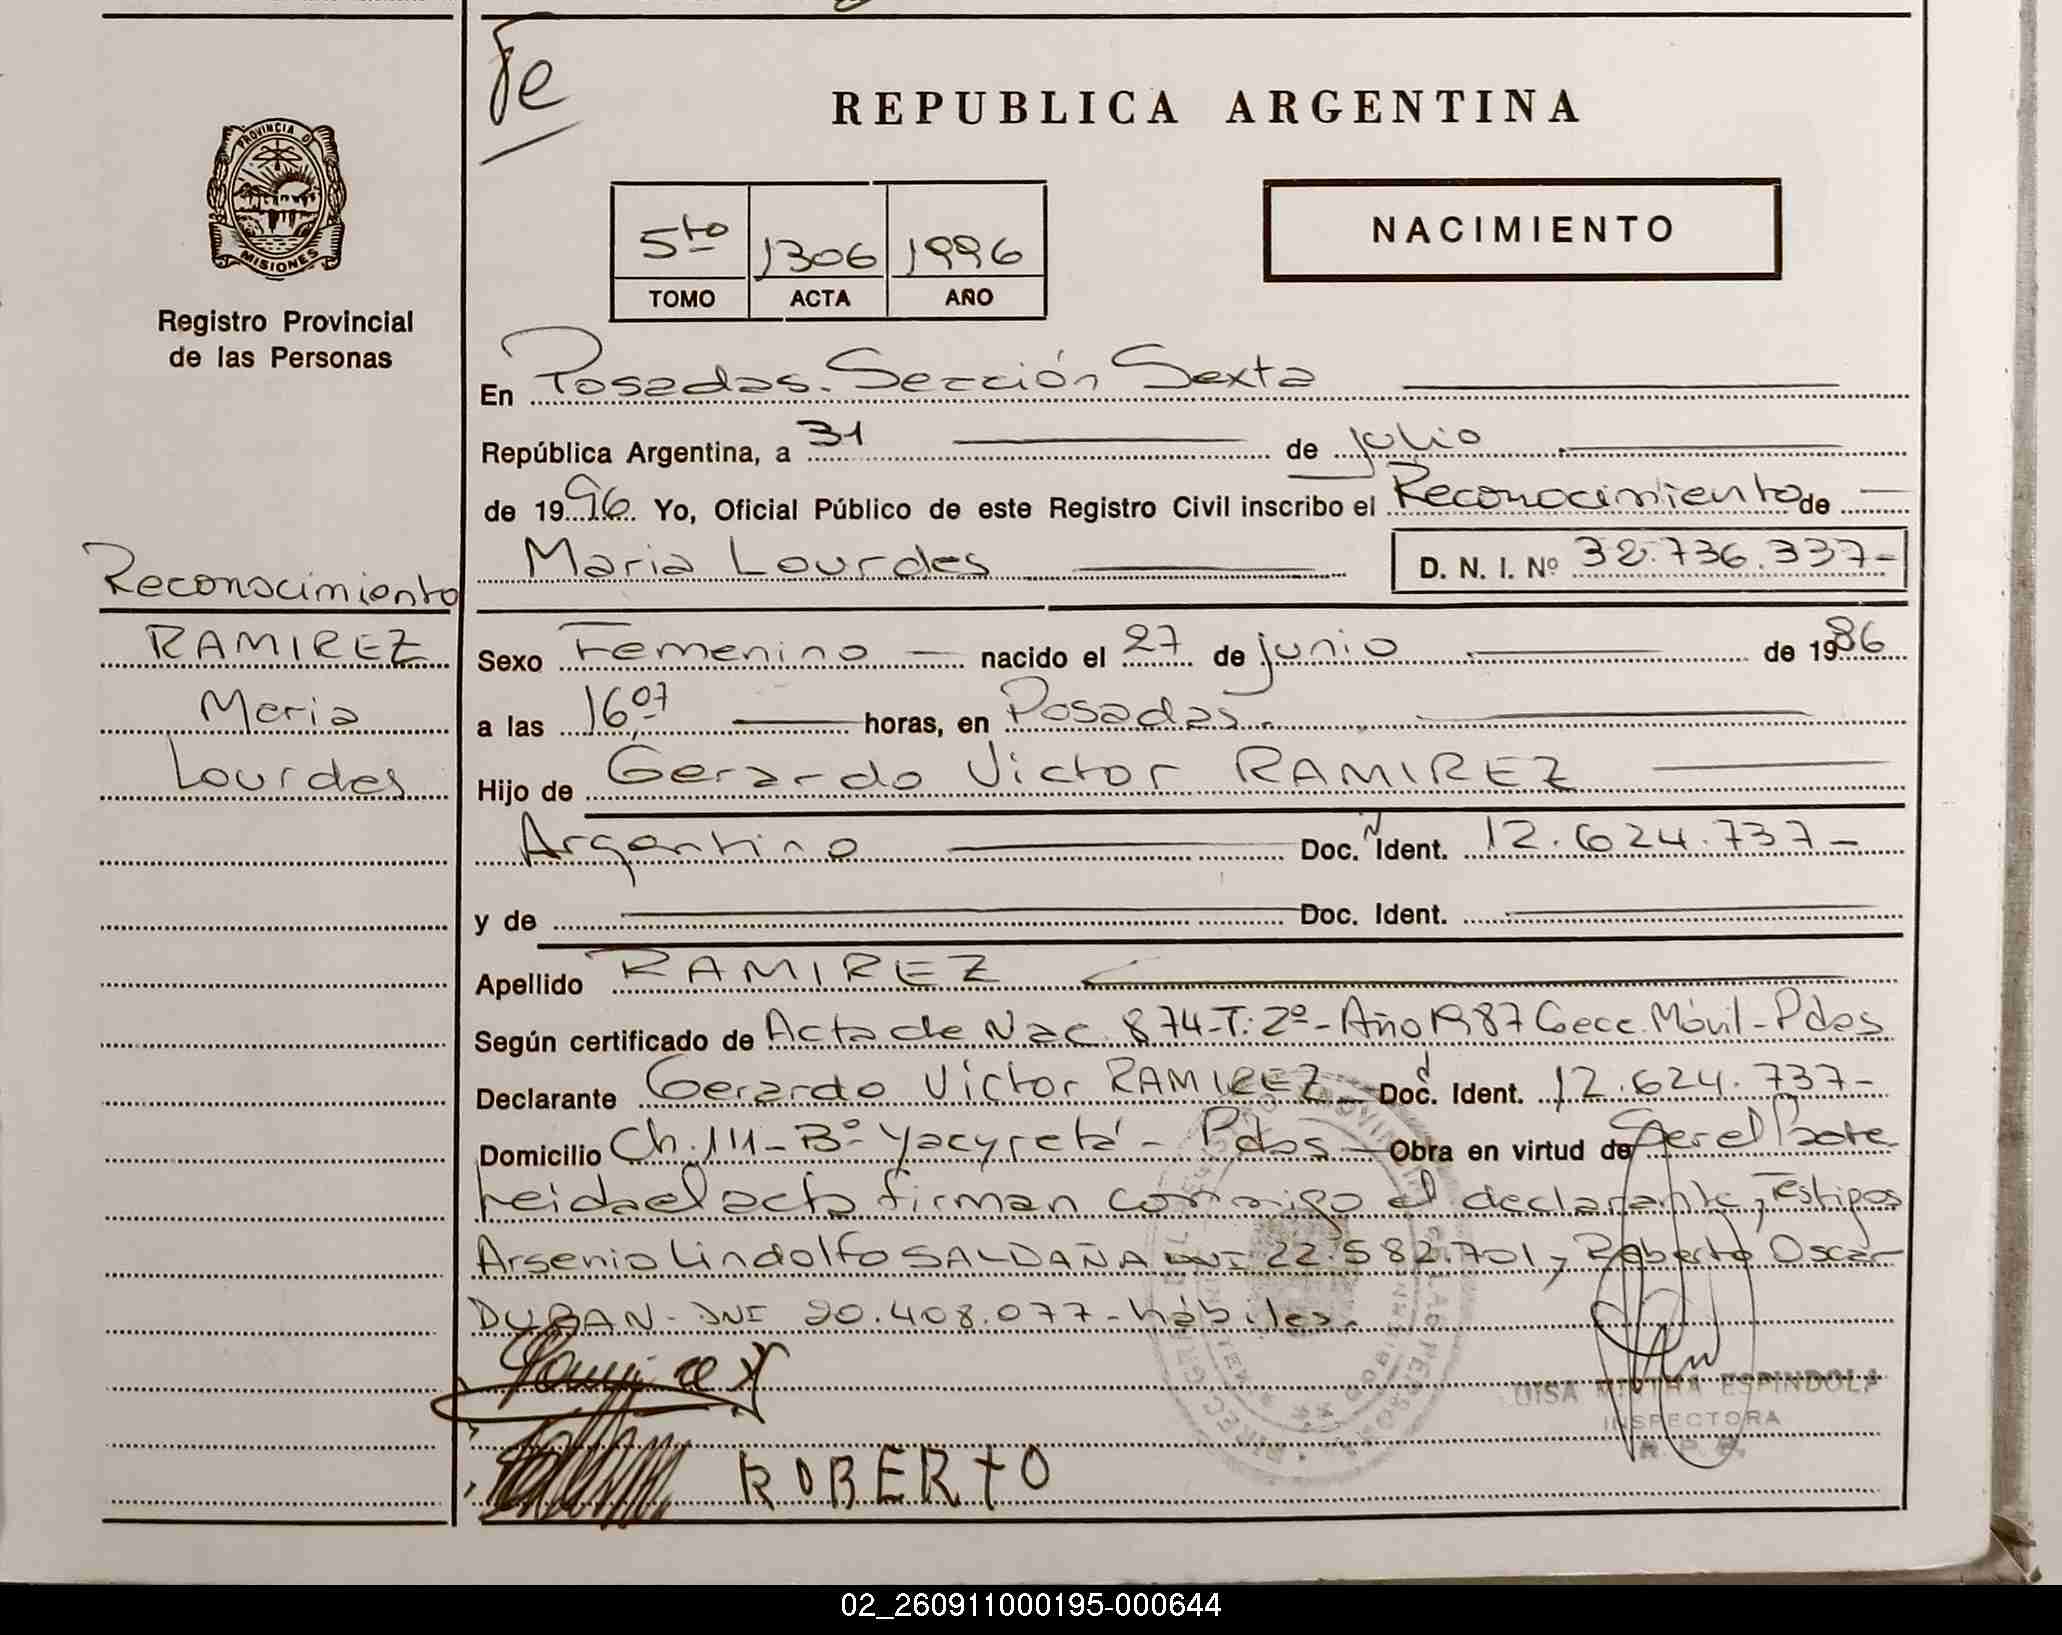 Fe
REPUBLICA ARGENTINA
PROVINCIA DE
MISIONES
Registro Provincial
de las Personas
5to 1306 1996
TOMO ACTA AÑO
NACIMIENTO
En Posadas. Sección Sexta
República Argentina, a 31 de julio
de 1996. Yo, Oficial Público de este Registro Civil inscribo el Reconocimiento de
Maria Lourdes D. N. I. Nº 32.736.337-
Reconocimiento
RAMIREZ
Maria
Lourdes
Sexo Femenino nacido el 27 de junio de 1986
a las 16,07 horas, en Posadas.
Hijo de Gerardo Victor RAMIREZ
Argentino Doc. Ident. 12.624.737-
y de Doc. Ident.
Apellido RAMIREZ
Según certificado de Acta de Nac. 874-T: 2º-Año 1987 Móvil-Pdas
Declarante Gerardo Victor RAMIREZ - Doc. Ident. 12.624.737-
Domicilio Ch. 111-Bº Yacyretá - Pdas - Obra en virtud de Ser el Padre
Leida el acta firman conmigo el declarante, Testigos
Arsenio Lindolfo SALDAÑA DNI 22.582.701, Roberto Oscar
DURAN- DNI 20.408.077-hábiles.
Ramirez
ROBERTO
ESPINDOLA
INSPECTORA
02_260911000195-000644